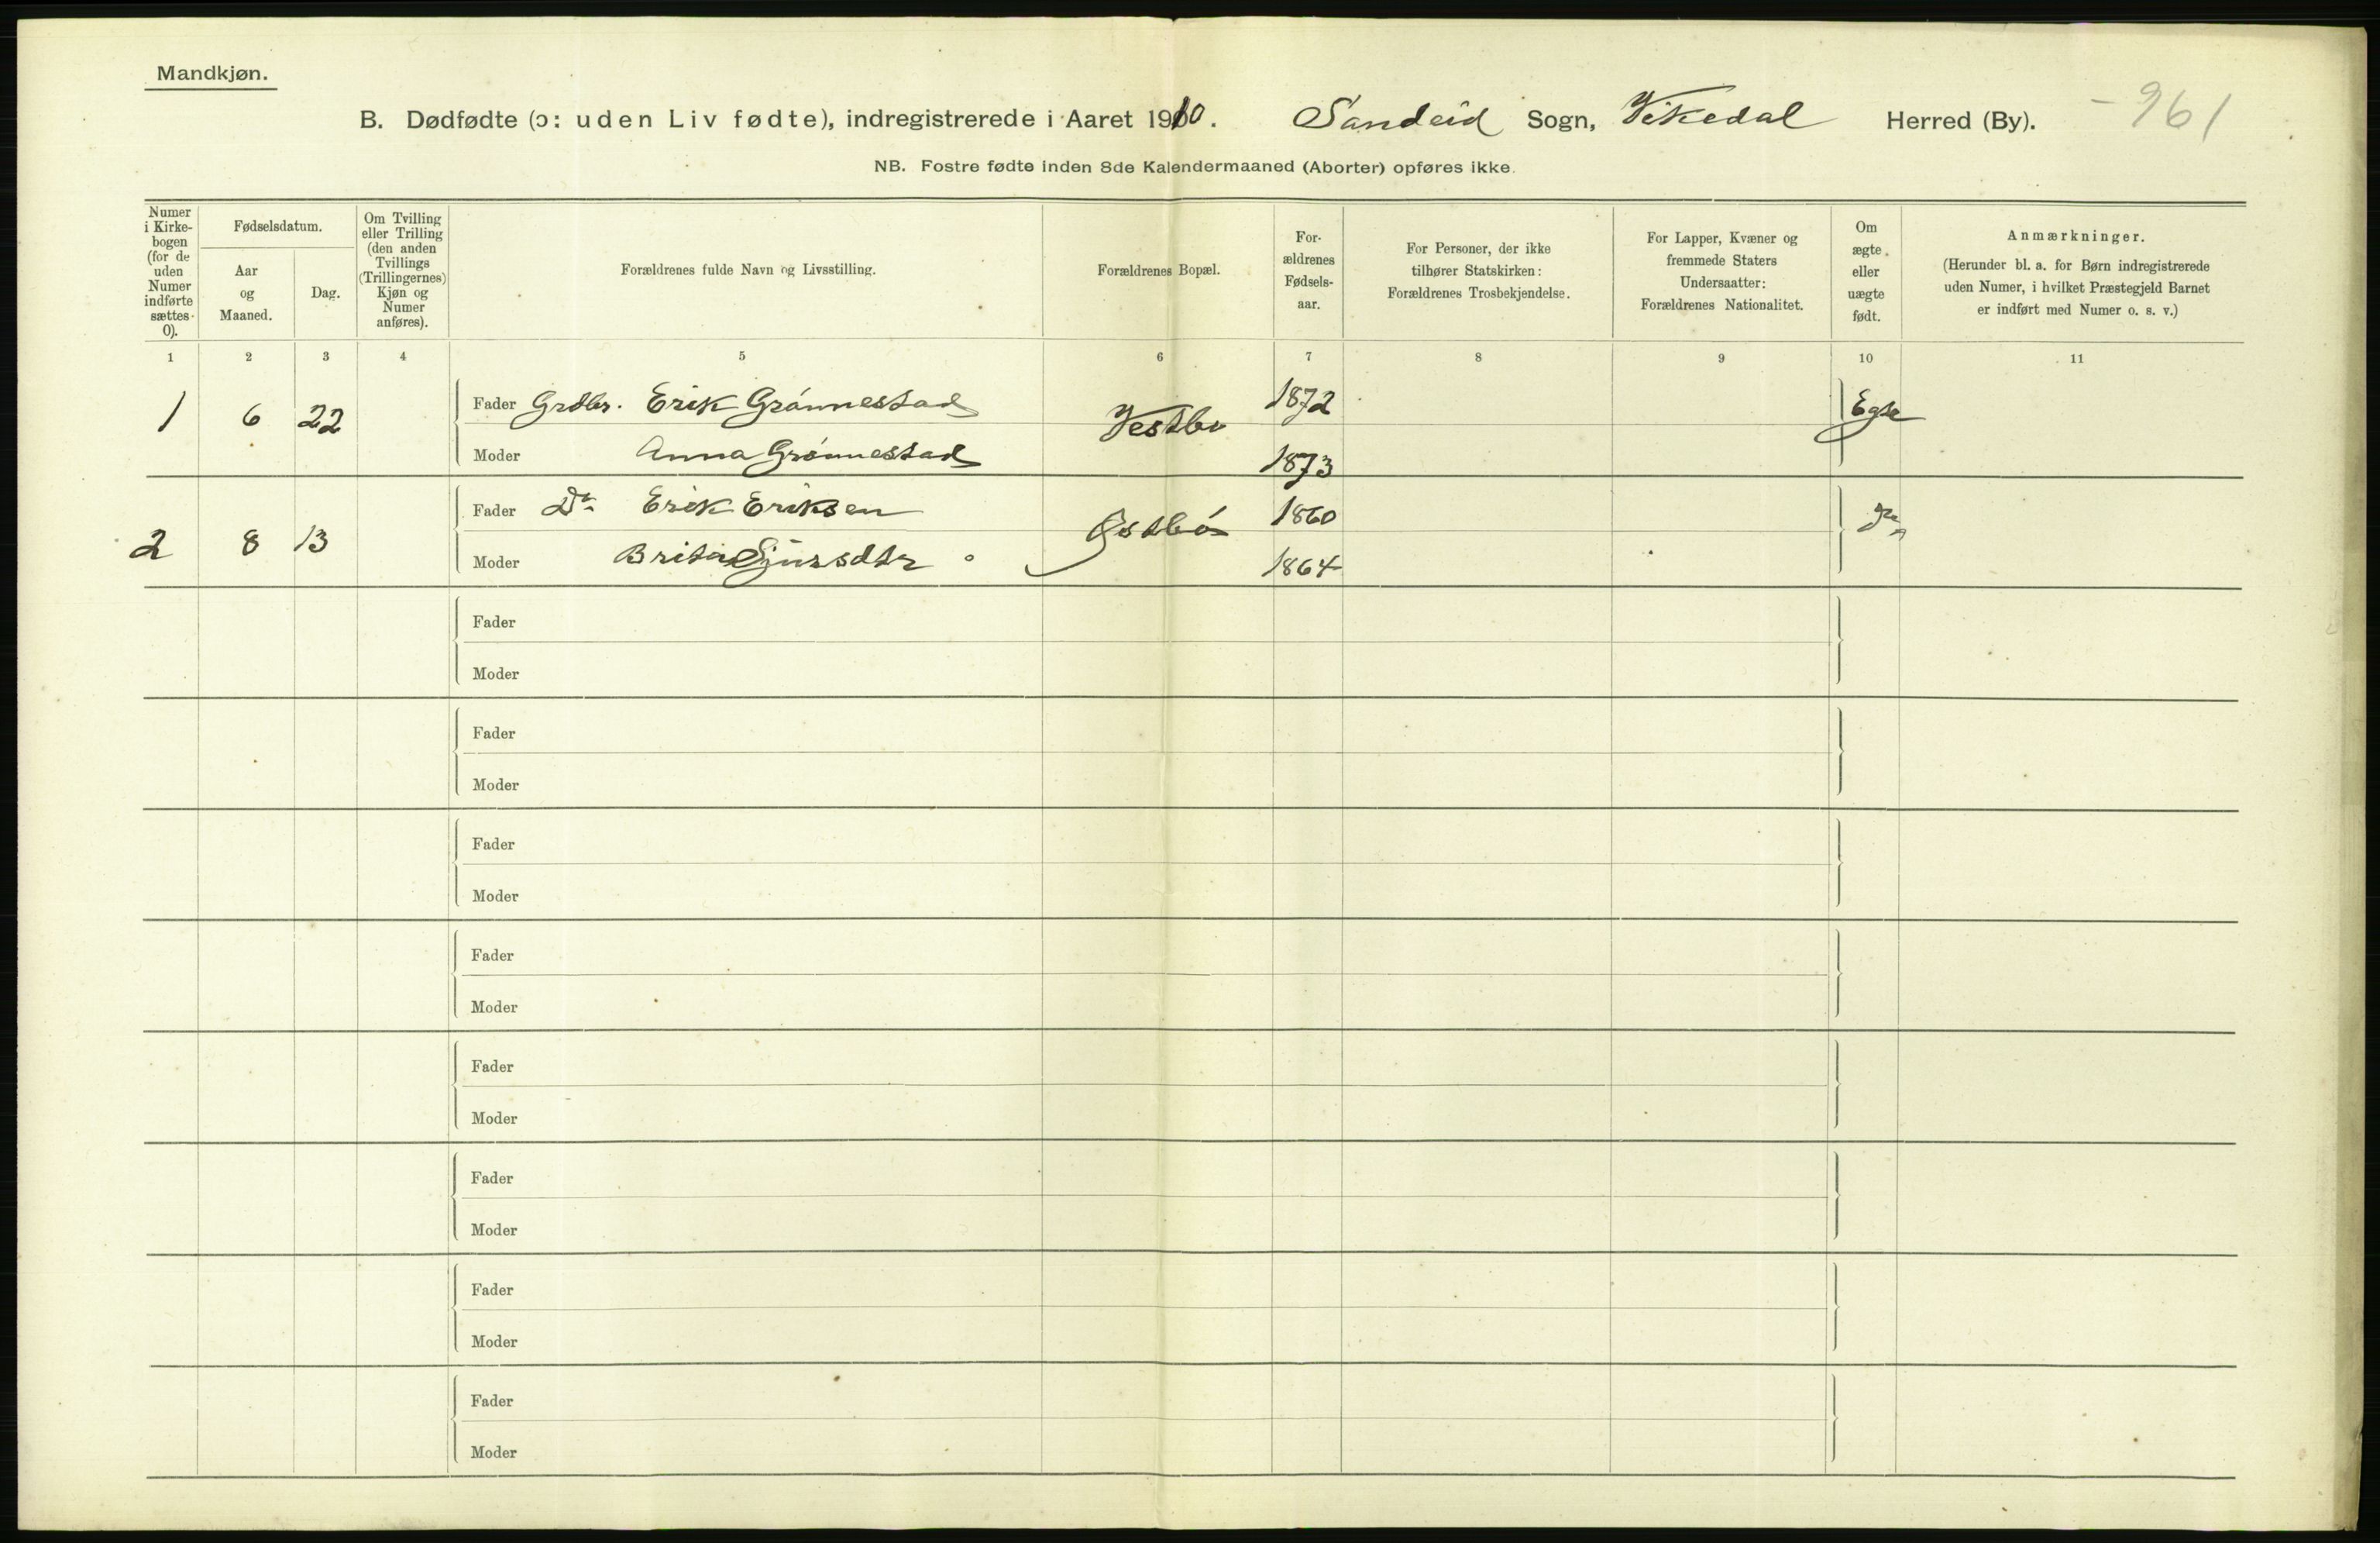 Mandkjøn.
B. Dødfødte (ɔ: uden Liv fødte), indregistrerede i Aaret 1910. Sandeid Sogn, Vikedal Herred (By). -961
NB. Fostre fødte inden 8de Kalendermaaned (Aborter) opføres ikke.
Numer
i Kirke-
bogen
(for de
uden
Numer
indførte
sættes
0).
Fødselsdatum.
Aar
og
Maaned.
Dag.
Om Tvilling
eller Trilling
(den anden
Tvillings
(Trillingernes)
Kjøn og
Numer
anføres).
Forældrenes fulde Navn og Livsstilling.
Forældrenes Bopæl.
For-
ældrenes
Fødsels-
aar.
For Personer, der ikke
tilhører Statskirken:
Forældrenes Trosbekjendelse.
For Lapper, Kvæner og
fremmede Staters
Undersaatter:
Forældrenes Nationalitet.
Om
ægte
eller
uægte
født.
Anmærkninger.
(Herunder bl. a. for Børn indregistrerede
uden Numer, i hvilket Præstegjeld Barnet
er indført med Numer o. s. v.)
1 2 3 4 5 6 7 8 9 10 11
1 6 22 Fader Grdbr. Erik Grónnestad Vestbø 1872 Egte
Moder Anna Grónnestad 1873
2 8 13 Fader Do Erik Eriksen Østbó 1860 Do
Moder Brita Sjursdtr 1864
Fader
Moder
Fader
Moder
Fader
Moder
Fader
Moder
Fader
Moder
Fader
Moder
Fader
Moder
Fader
Moder